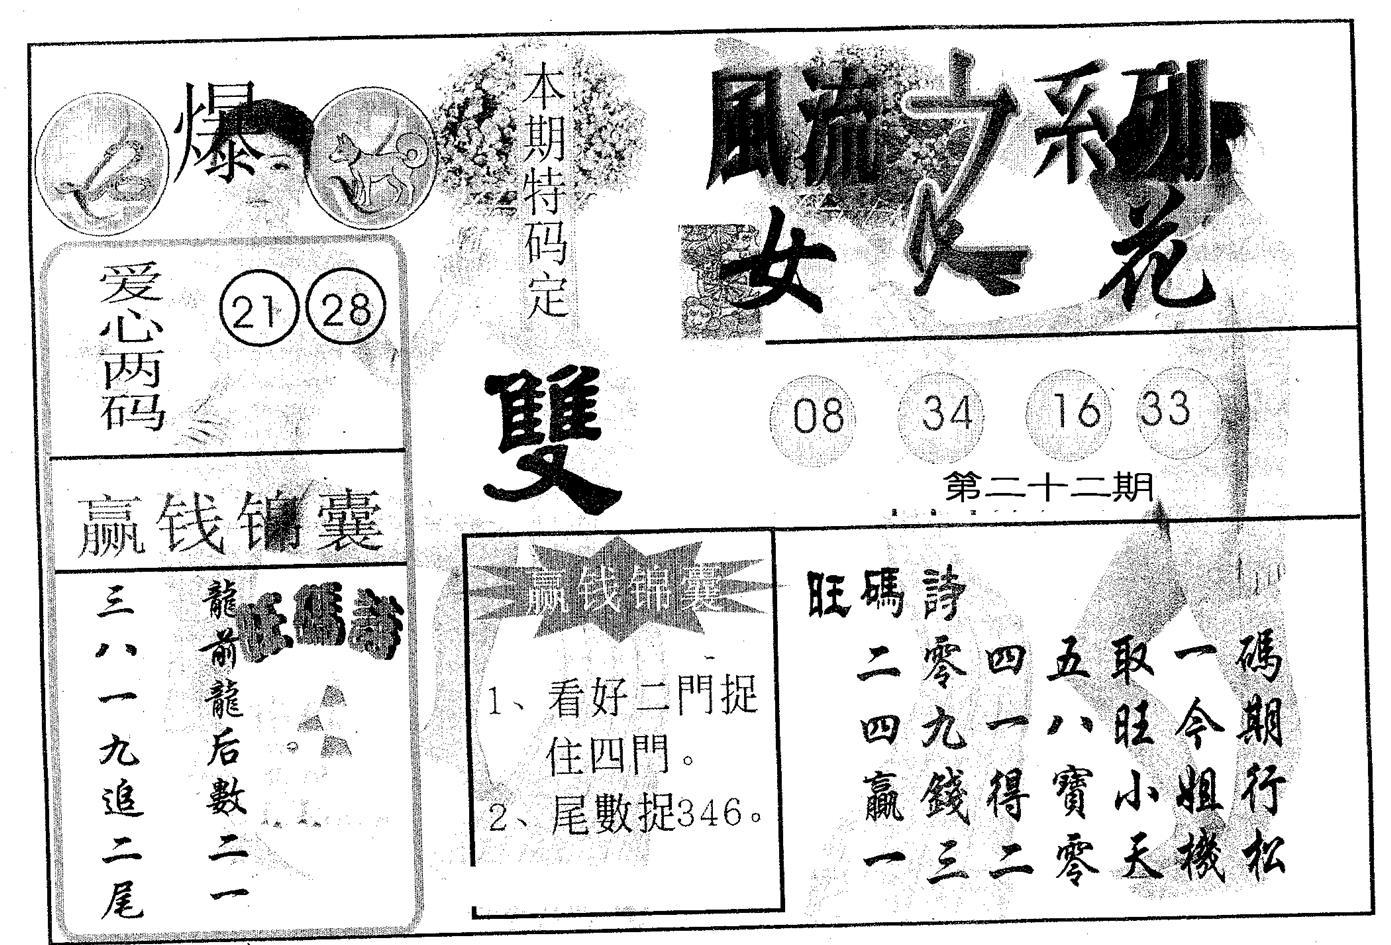 爆
本期特码定
雙
風流之系列
女人花
爱心两码
21 28
赢钱锦囊
龍前龍后數二一
三八一九追二尾
旺碼詩
08 34 16 33
第二十二期
赢钱锦囊
1、看好二門捉
住四門。
2、尾數捉346。
旺碼詩
二零四五取一碼
四九一八旺今期
贏錢得寶小姐行
一三二零天機松